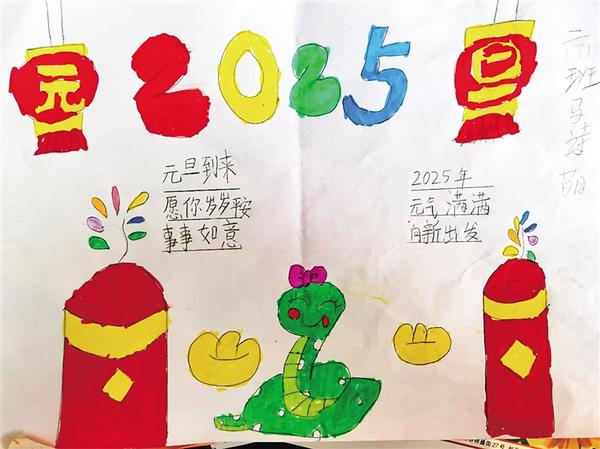 元 2025 旦
元旦到来
愿你岁岁平安
事事如意
2025年
元气满满
向新出发